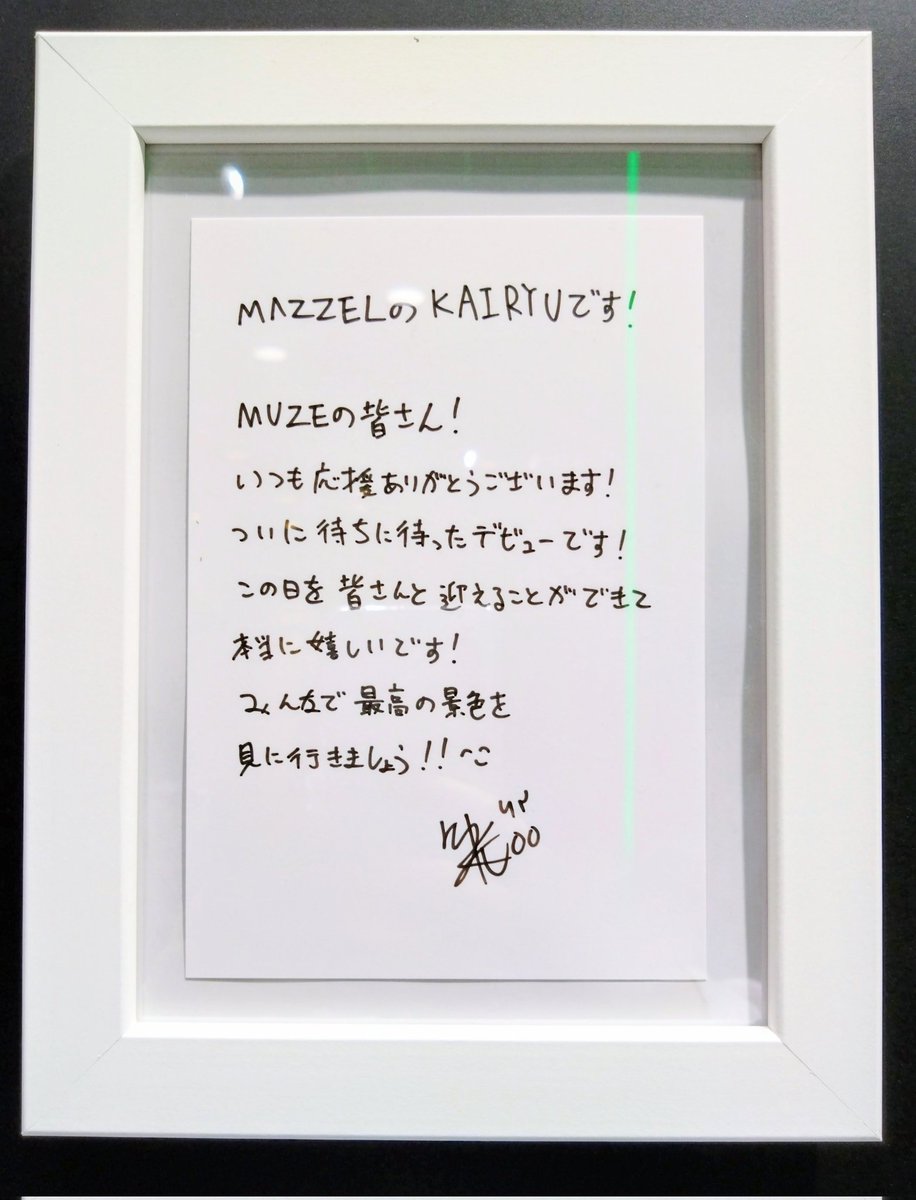 MAZZELのKAIRYUです!
MUZEの皆さん!
いつも応援ありがとうございます!
ついに待ちに待ったデビューです!
この日を皆さんと迎えることができて
本当に嬉しいです!
みんなで最高の景色を
見に行きましょう!!